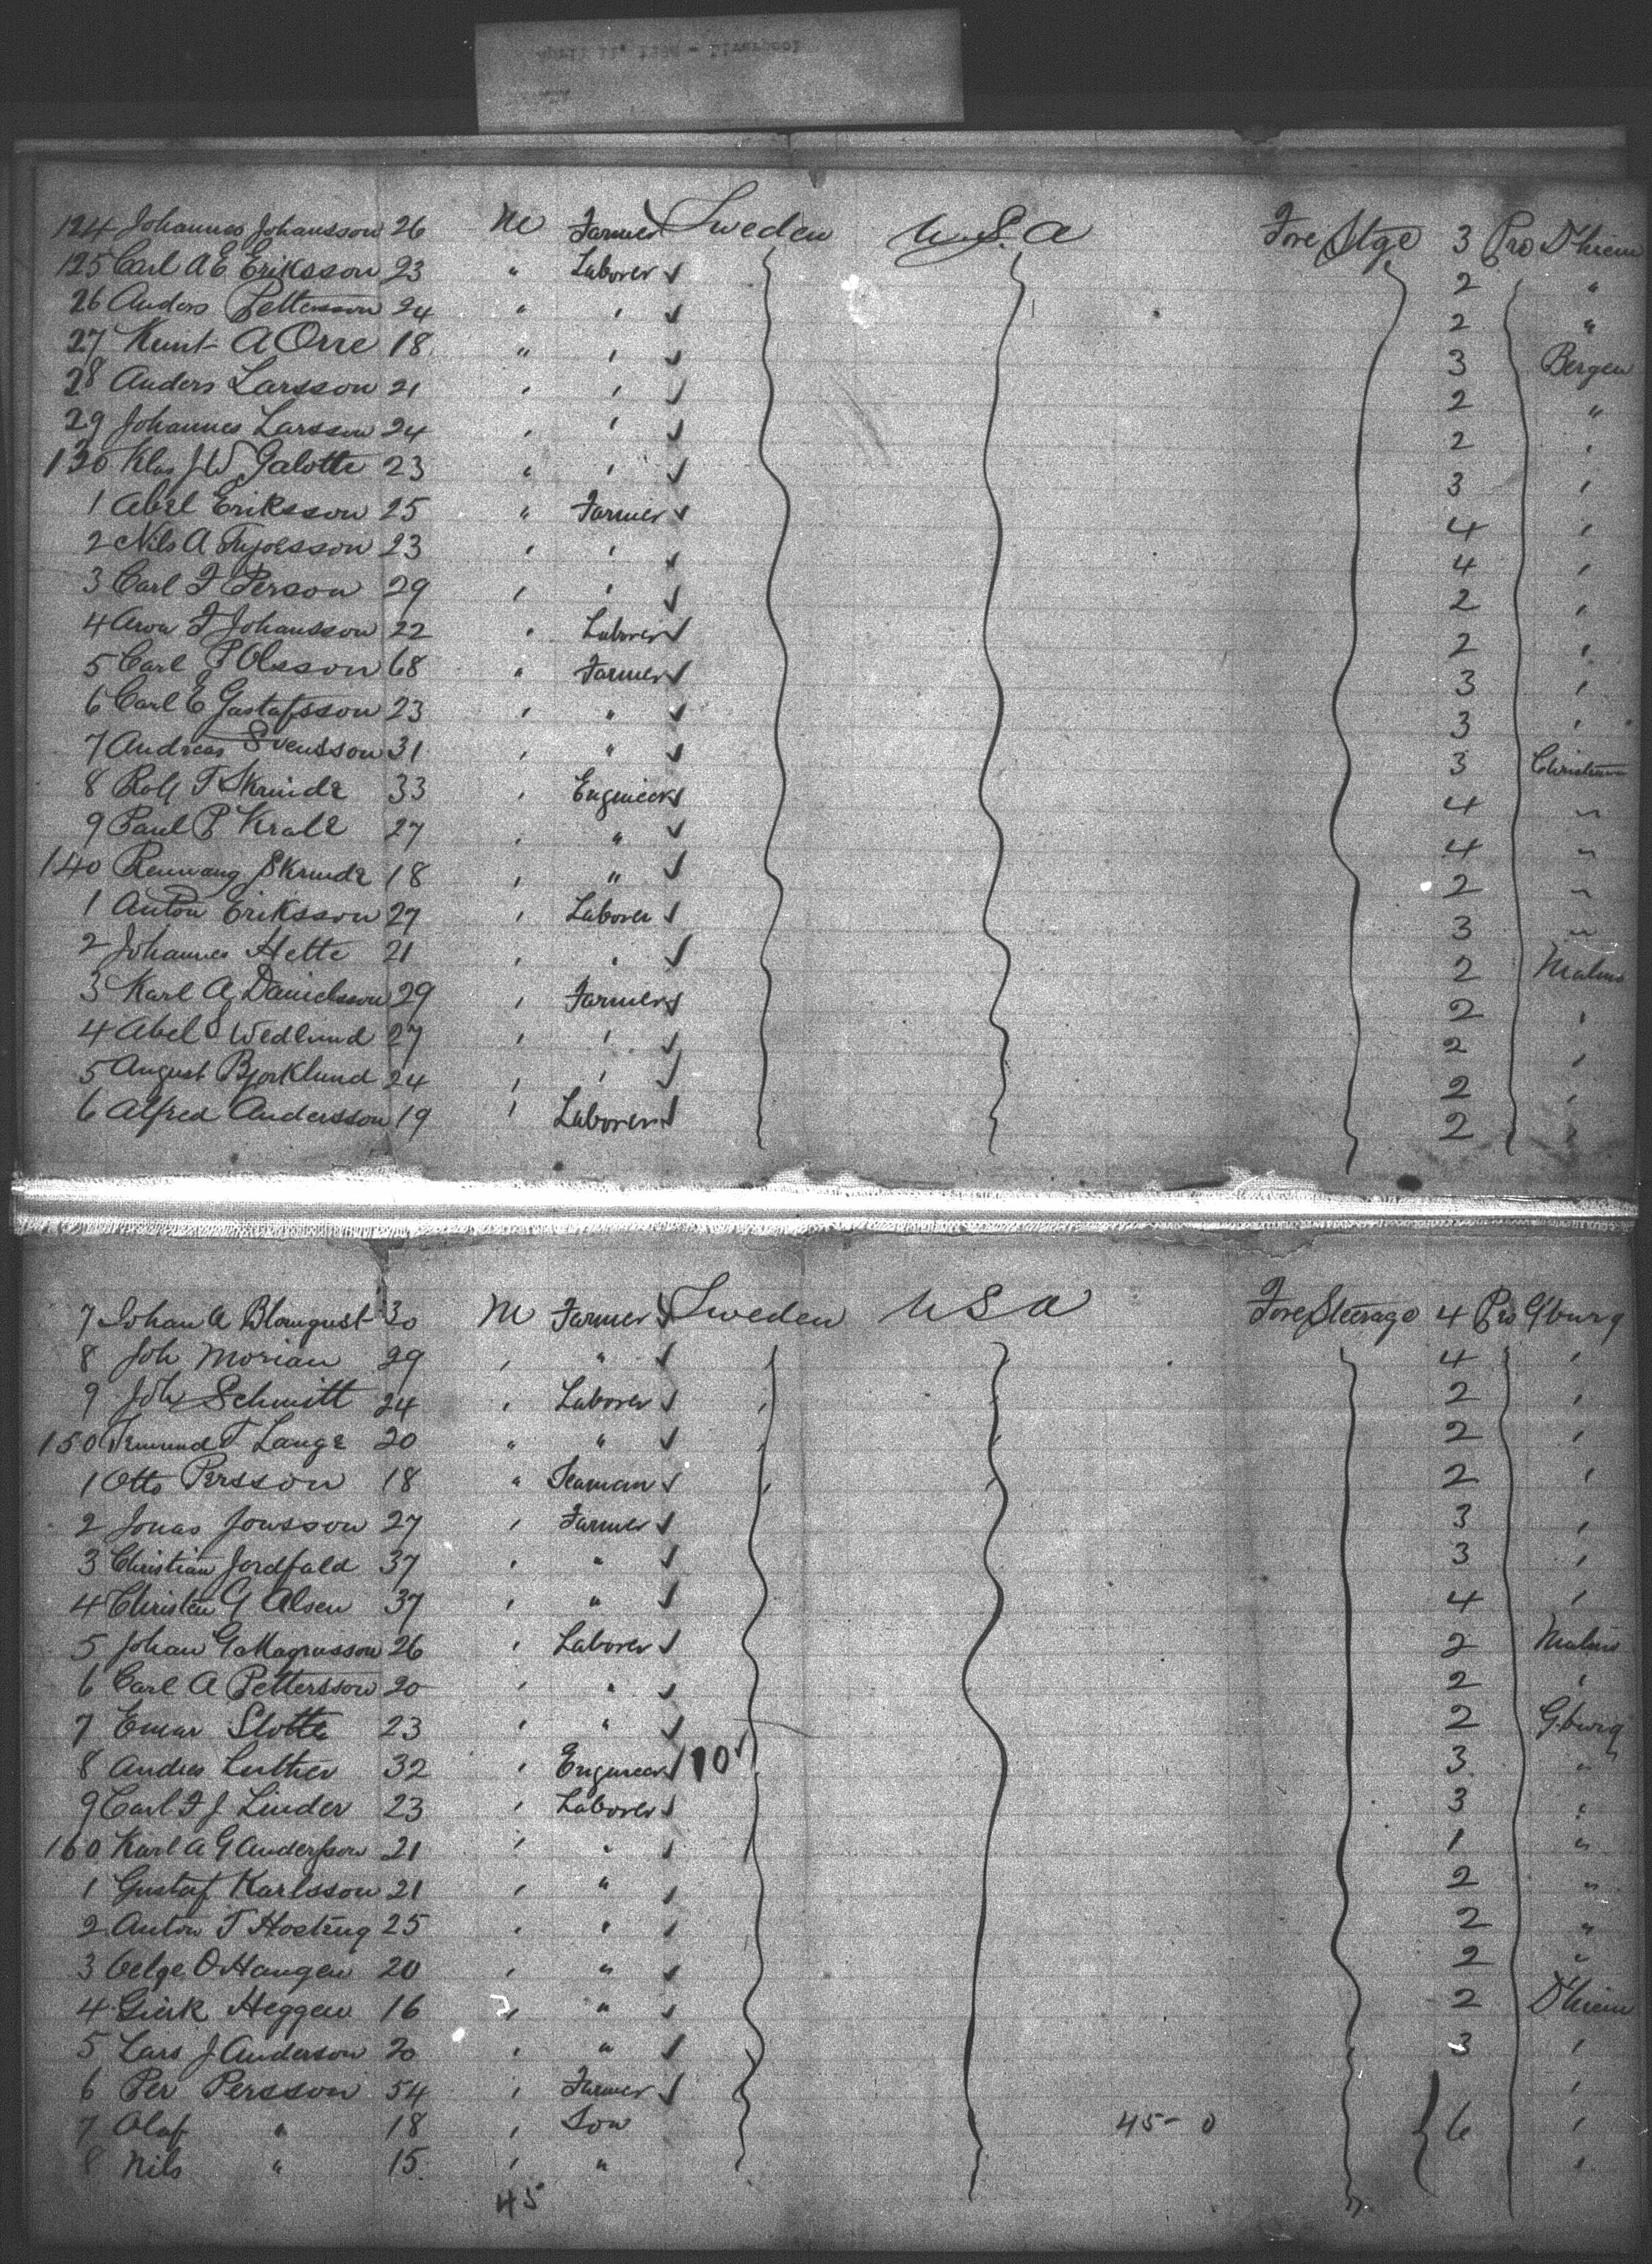 124 Johannes Johansson 26 M Farmer Sweden U.S.A Fore Stge 3 Pro D'hiem
125 Carl A E Eriksson 23 " Laborer 2 "
26 Anders Pettersson 24 " " 2 "
27 Knut A Orre 18 " " 3 Bergen
28 Anders Larsson 21 " " 2 "
29 Johannes Larsson 24 " " 2 "
130 Klas J W Galotte 23 " " 3 "
1 Abel Eriksson 25 " Farmer 4 "
2 Nils A 23 " " 4 "
3 Carl F Person 29 " " 2 "
4 F Johansson 22 " Laborer 2 "
5 Carl P Olsson 68 " Farmer 3 "
6 Carl E Gustafsson 23 " " 3 "
7 Andreas Svensson 31 " " 3 Christiania
8 Rolf T 33 " Engineer 4 "
9 Paul P 27 " " 4 "
140 18 " " 2 "
1 Anton Eriksson 27 " Laborer 3 "
2 Johannes Hette 21 " " 2 Malmo
3 Karl A Danielsson 29 " Farmer 2 "
4 Abel S Wedlund 27 " " 2 "
5 August Bjorklund 24 " " 2 "
6 Alfred Andersson 19 " Laborer 2 "
7 Johan A Blomqust 30 M Farmer Sweden U S A Fore Steerage 4 Pro Gburg
8 Joh Morian 29 " " 4 "
9 Joh Schmitt 24 " Laborer 2 "
150 T Lange 20 " " 2 "
1 Otto Persson 18 " Seaman 2 "
2 Jonas Jonsson 27 " Farmer 3 "
3 Christian Jordfald 37 " " 3 "
4 Christen G Alsen 37 " " 4 "
5 Johan G Magnusson 26 " Laborer 2 Malmo
6 Carl A Pettersson 20 " " 2 "
7 Slotte 23 " " 2 Gburg
8 Andres Luther 32 " Engineer 10 3 "
9 Carl F J Linder 23 " Laborer 3 "
160 Karl A G Anderson 21 " " 1 "
1 Gustaf Karlsson 21 " " 2 "
2 Anton T 25 " " 2 "
3 O Haugen 20 " " 2 "
4 Heggen 16 " " 2 D'hiem
5 Lars J Anderson 20 " " 3 "
6 Per Persson 54 " Farmer "
7 Olaf " 18 " Son 45-0 6 "
8 Nils " 15 " " "
45